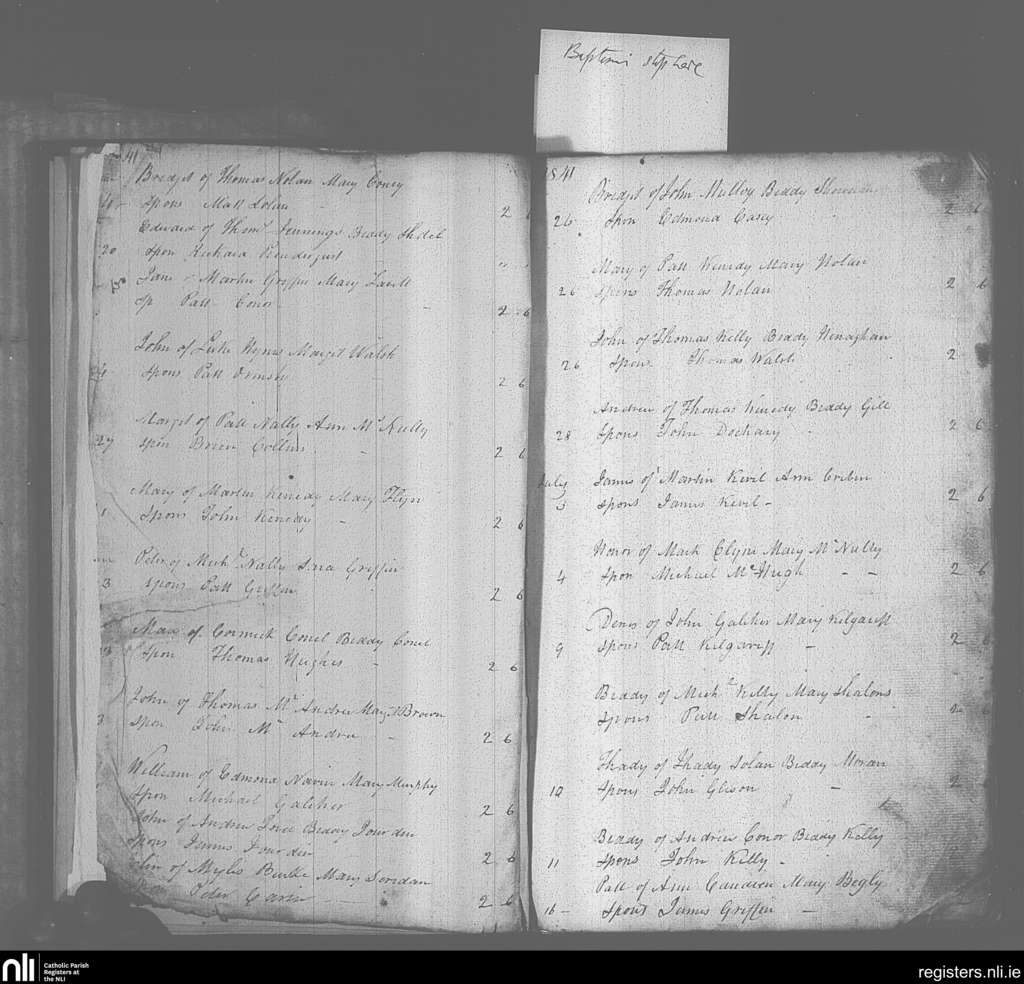 Baptisms stop here
41
Bredget of Thomas Nolan Mary Coney
Spons Matt Dolan 2 6
Edward of Thoms Jennings Beady
20 Spon Richard Prendergast " "
Jane of Martin Griffin Mary
Sp Patt Conor 2 6
John of Luke Hynes Margit Walsh
Spons Patt 2 6
Margit of Patt Nally Ann McNully
27 Spon Brien Collins - 2 6
Mary of Martin Kenedy Mary Flyn
1 Spons John Kenedy - 2 6
Peter of Michl Nally Griffin
3 Spons Patt Griffin 2 6
of Cormick Conel Beddy Conel
Spon Thomas Hughes - 2 6
John of Thomas Mc Andrew Margt Brown
3 Spon John Mc Andrew - 2 6
William of Edmond Navin Mary Murphy
Spon Michael Galiher 2 6
John of Andrew Beddy Jourden
Spons James Jourden 2 6
John of Myles Burke Mary Soridan
Peter 2 6
1841
Bredgit of John Mulloy Beddy
26 Spon Edmond Casey 2 6
Mary of Patt Kenedy Mary Nolan
26 Spons Thomas Nolan 2 6
John of Thomas Kelly Beddy Henaghan
26 Spons Thomas Walsh 2
Andrew of Thomas Kenedy Beddy Gill
28 Spons John Dochary - 2 6
July James of Martin Kevil Ann Cribin
3 Spons James Kevil - 2 6
Honor of Mark Clyne Mary McNulty
4 Spon Michael McHugh - - 2 6
Denis of John Galiher Mary Kilgariff
9 Spons Patt Kilgariff - 2 6
Beddy of Michl Kelly Mary Shalons
Spons Patt Shalon - 2 6
Thady of Thady Solan Beddy Moran
10 Spons John Glison - 2
Beddy of Andrew Conor Beddy Kelly
11 Spons John Kelly -
Patt of Ann Mary Begly
16 - Spons James Griffin -
nli
Catholic Parish
Registers at
the NLI
registers.nli.ie